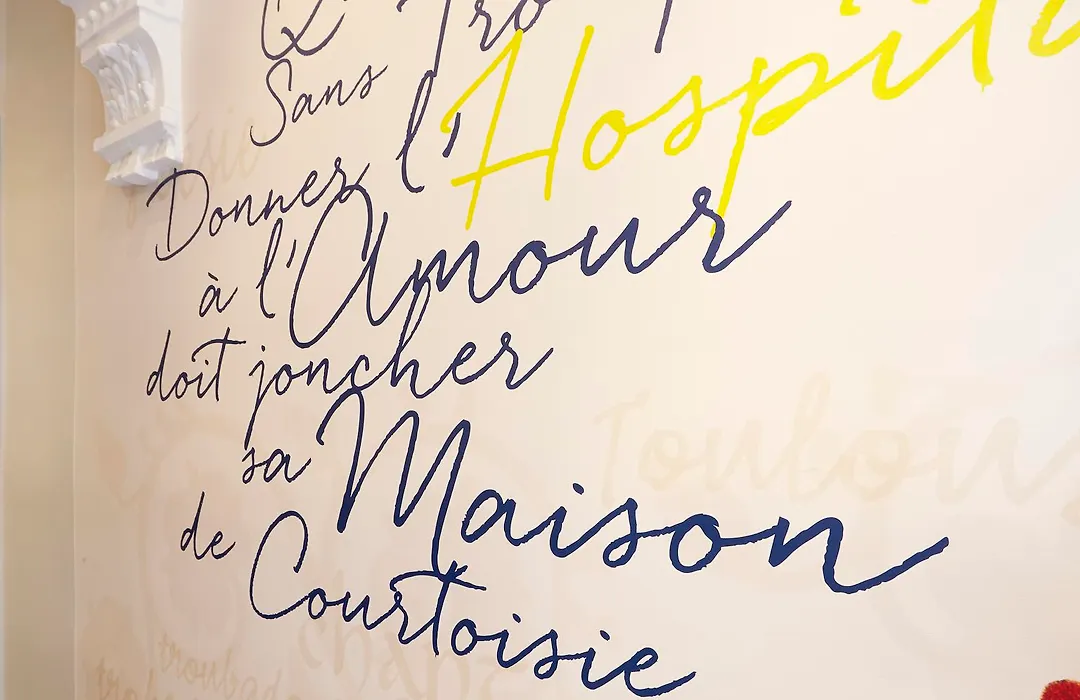 Sans
Donner l'Hospita
à l'Amour
doit joncher
sa Maison
de Courtoisie
troubad